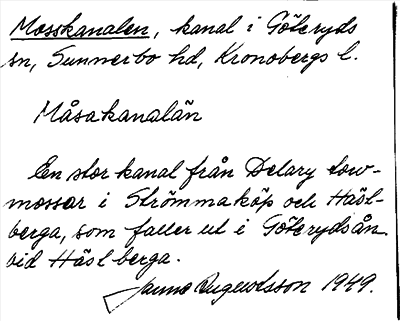 Mosskanalen, kanal i Göteryds
sn, Sunnerbo hd, Kronobergs l.
Måsakanalän
En stor kanal från Delary tow-
mossar i Strömmaköp och Häsl-
berga, som faller ut i Göterydsån
vid Häsl berga.
Janne Augustsson 1949.